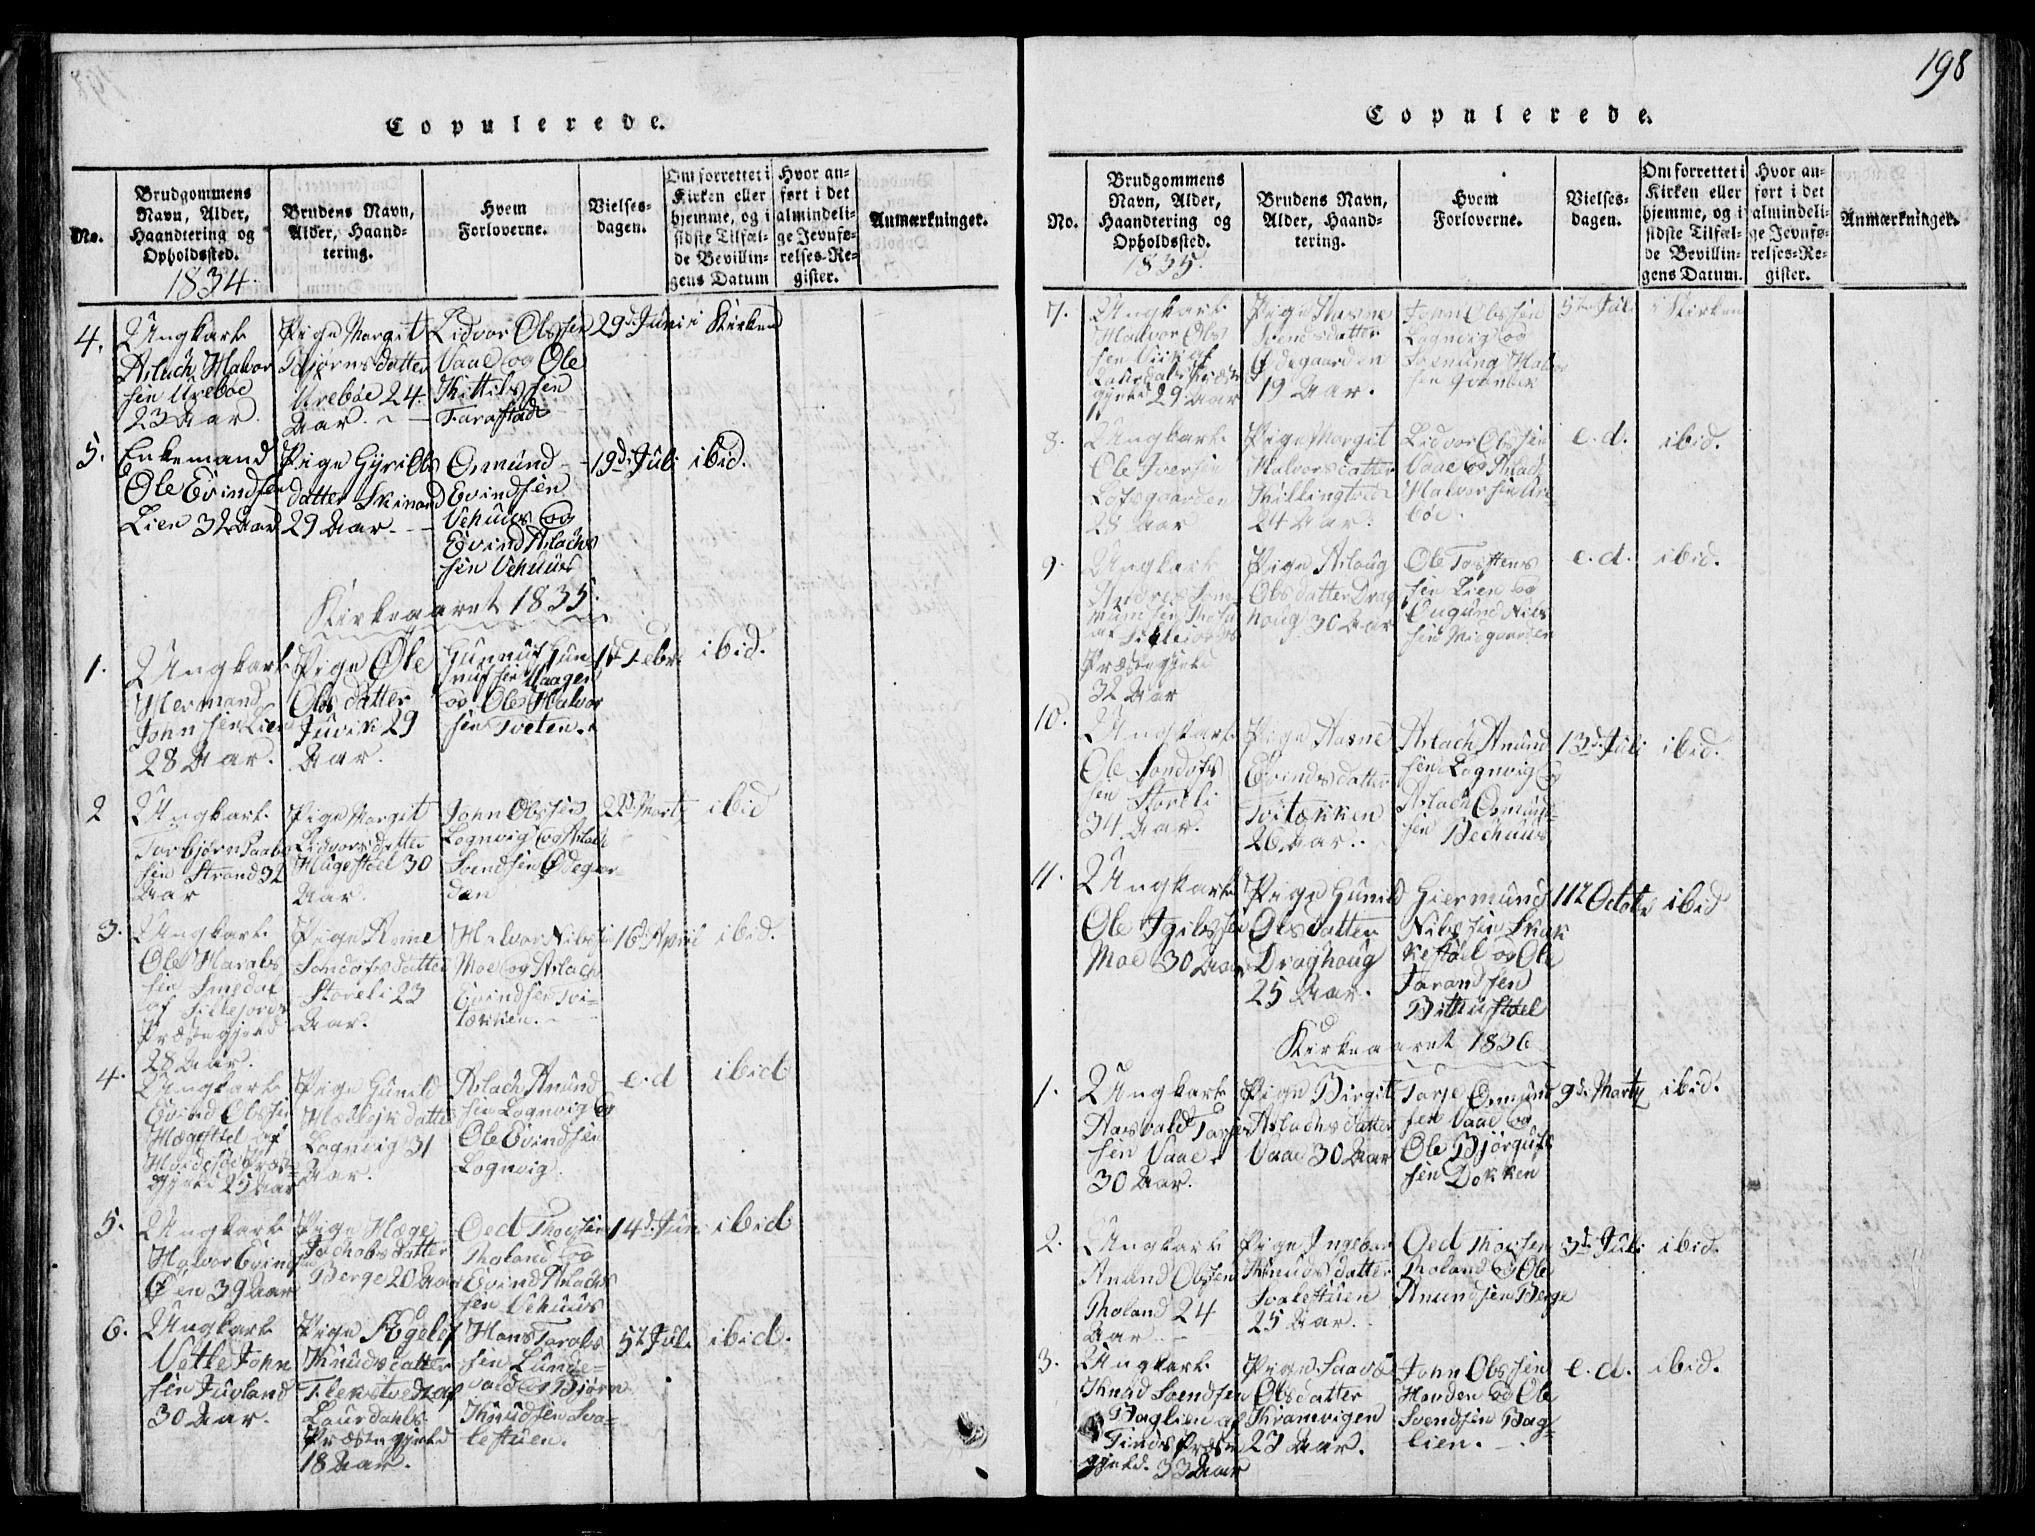 198
Copulerede.
No.
Brudgommens
Navn, Alder,
Haandtering og
Opholdssted.
1834.
Brudens Navn,
Alder, Haand-
tering.
Hvem
Forloverne.
Vielses-
dagen.
Om forrettet i
Kirken eller
hjemme, og i
sidste Tilfæl-
de Bevillin-
gens Datum
Hvor an-
ført i det
almindeli-
ge Jevnfø-
relses-Re-
gister.
Anmærkninger.
4.
Ungkarl
Aslach Halvor
sen Urebøe
23 Aar.
Pige Margit
Bjørnsdatter
Urebøe 24
Aar.
Lidvor Olssen
Vaae og Ole
Kittilssen
Farastad
29d Juni
i Kirken
5.
Enkemand
Ole Evindsen
Lien 32 Aar
Pige Gyri Ols
datter Skinard
29 Aar.
Osmund
Evindsen
Vehuus og
Evind Aslachs
sen Vehuus
19d Juli
ibid.
Kirkeaaret 1835.
1.
Ungkarl
Hermand
Johnsen Lien
28 Aar.
Pige Øle
Olsdatter
Juvik 29
Aar.
Gunnuf Gun-
nufsen Haagen
og Ole Halvor
sen Tveten.
1t Febr.
ibid.
2
Ungkarl
Torbjørn
sen Strand 32
Aar
Pige Margit
Lidvorsdatter
Hægestøel 30
Aar.
John Olssen
Lognvig og Aslach
Svendsen Ødegaar
den
22d Marti
ibid
3.
Ungkarl
Ole Haralds
sen Smedal
af Sillejords
Præstegjeld
28 Aar.
Pige Asne
Sondofsdatter
Storeli 23
Aar.
Halvor Nilssen
Moe og Aslach
Evindsen Tvi-
tøkken.
16d April
ibid.
4.
Ungkarl
Evind Olssen
Hægestøel af
Hvidesøe Præste
gjeld 25 Aar
Pige Gunild
Hællejk datter
Lognvig 31
Aar.
Aslach Anund
sen Lognvig og
Ole Evindsen
Lognvig.
e. d
ibid
5.
Ungkarl
Halvor Evind
Øen 39 Aar
Pige Hæge
Jachobsdatter
Berge 20 Aar
Oed Thovsen
Tholand og
Evind Aslachs
sen Vehuus
14d Juni
ibid
6.
Ungkarl
Vetle John
sen Juvland
30 Aar.
Pige Ægelef
Knudsdatter
Flekstvedt af
Laurdahls
Præstegjeld
18 Aar.
Hans Taralds
sen Lunde-
vald og Bjørn
Knudsen Sva-
lestuen.
5t Juli
ibid.
Copulerede.
No.
Brudgommens
Navn, Alder,
Haandtering og
Opholdssted.
1835.
Brudens Navn,
Alder, Haand-
tering.
Hvem
Forloverne.
Vielses-
dagen.
Om forrettet i
Kirken eller
hjemme, og i
sidste Tilfæl-
de Bevillin-
gens Datum.
Hvor an-
ført i det
almindeli-
ge Jevnfø-
relses-Re-
gister.
Anmærkninger.
7.
Ungkarl
Halvor Ols
sen Viik af
Laurdals Præste
gjeld 29 Aar
Pige Aasne
Svendsdatter
Ødegaarden
19 Aar.
John Olssen
Lognvig og
Halvor
sen
5te Juli
i Kirken
8.
Ungkarl
Ole Iversen
Loftsgaarden
28 Aar
Pige Margit
Halvorsdatter
Killingtvedt
24 Aar.
Lidvor Olssen
Vaae og Aslach
Halvorsen Ure-
bøe.
e. d.
ibid.
9.
Ungkarl
Andres
af Sillejords
Præstegjeld
32 Aar
Pige Aslaug
Olsdatter Drag
houg 30 Aar
Ole Tostens
sen Lien og
Ougund Nils
sen Midgaarden
e. d.
ibid.
10.
Ungkarl
Ole Sondofs
sen Storeli
34 Aar.
Pige Aasne
Evindsdatter
Tvitøkken
26 Aar.
Aslach Anund
sen Lognvig og
Aslach Osmund-
sen Bechuus
13d Juli
ibid.
11.
Ungkarl
Ole Egilssen
Moe 30 Aar
Pige Gunild
Olsdatter
Draghoug
25 Aar.
Giermund
Nilssen Skak
kestøel og Ole
Tarandsen
Bitnustøel
11te Octobr
ibid
Kirkeaaret 1836
1.
Ungkarl
Aasvald Tarje
sen Vaae
30 Aar.
Pige Birgit
Aslachsdatter
Vaae 30 Aar
Tarje Osmund
sen Vaae og
Ole Bjørguls
sen Dokken
9d Marty
ibid.
2.
Ungkarl
Anund Olssen
Tholand 24
Aar.
Pige Ingebor
Knudsdatter
Svalestuen
25 Aar.
Oed Thovsen
Tholand og Ole
Anundsen Berge
3d Juli
ibid.
3.
Ungkarl
Knud Svendsen
Baglien af
Tinds Præste
gjeld. 33 Aar
Pige Saave
Olsdatter
Kramvigen
23 Aar.
John Olssen
Hovden og Ole
Svendsen Bag-
lien.
e. d.
ibid.